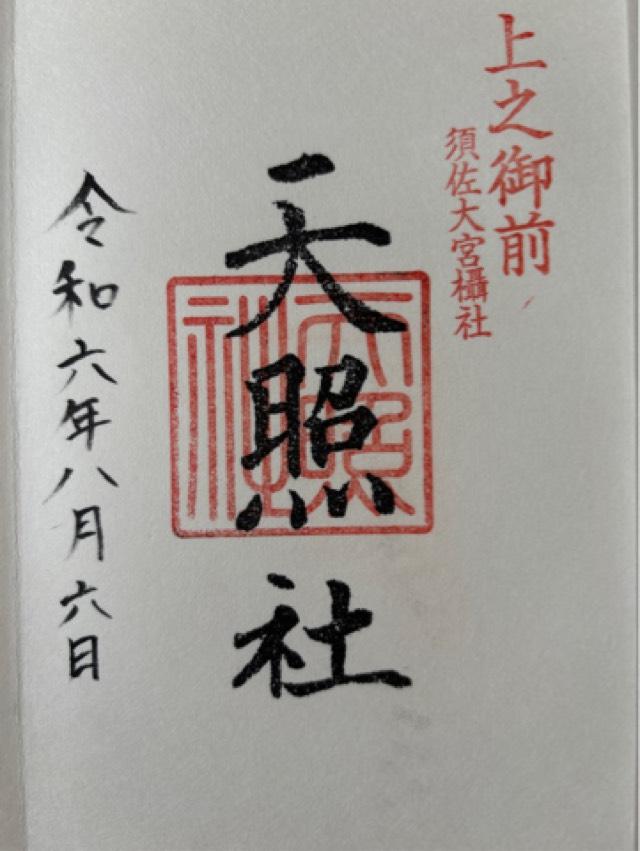 上之御前
須佐大宮攝社
天照社
天照社
令和六年八月六日